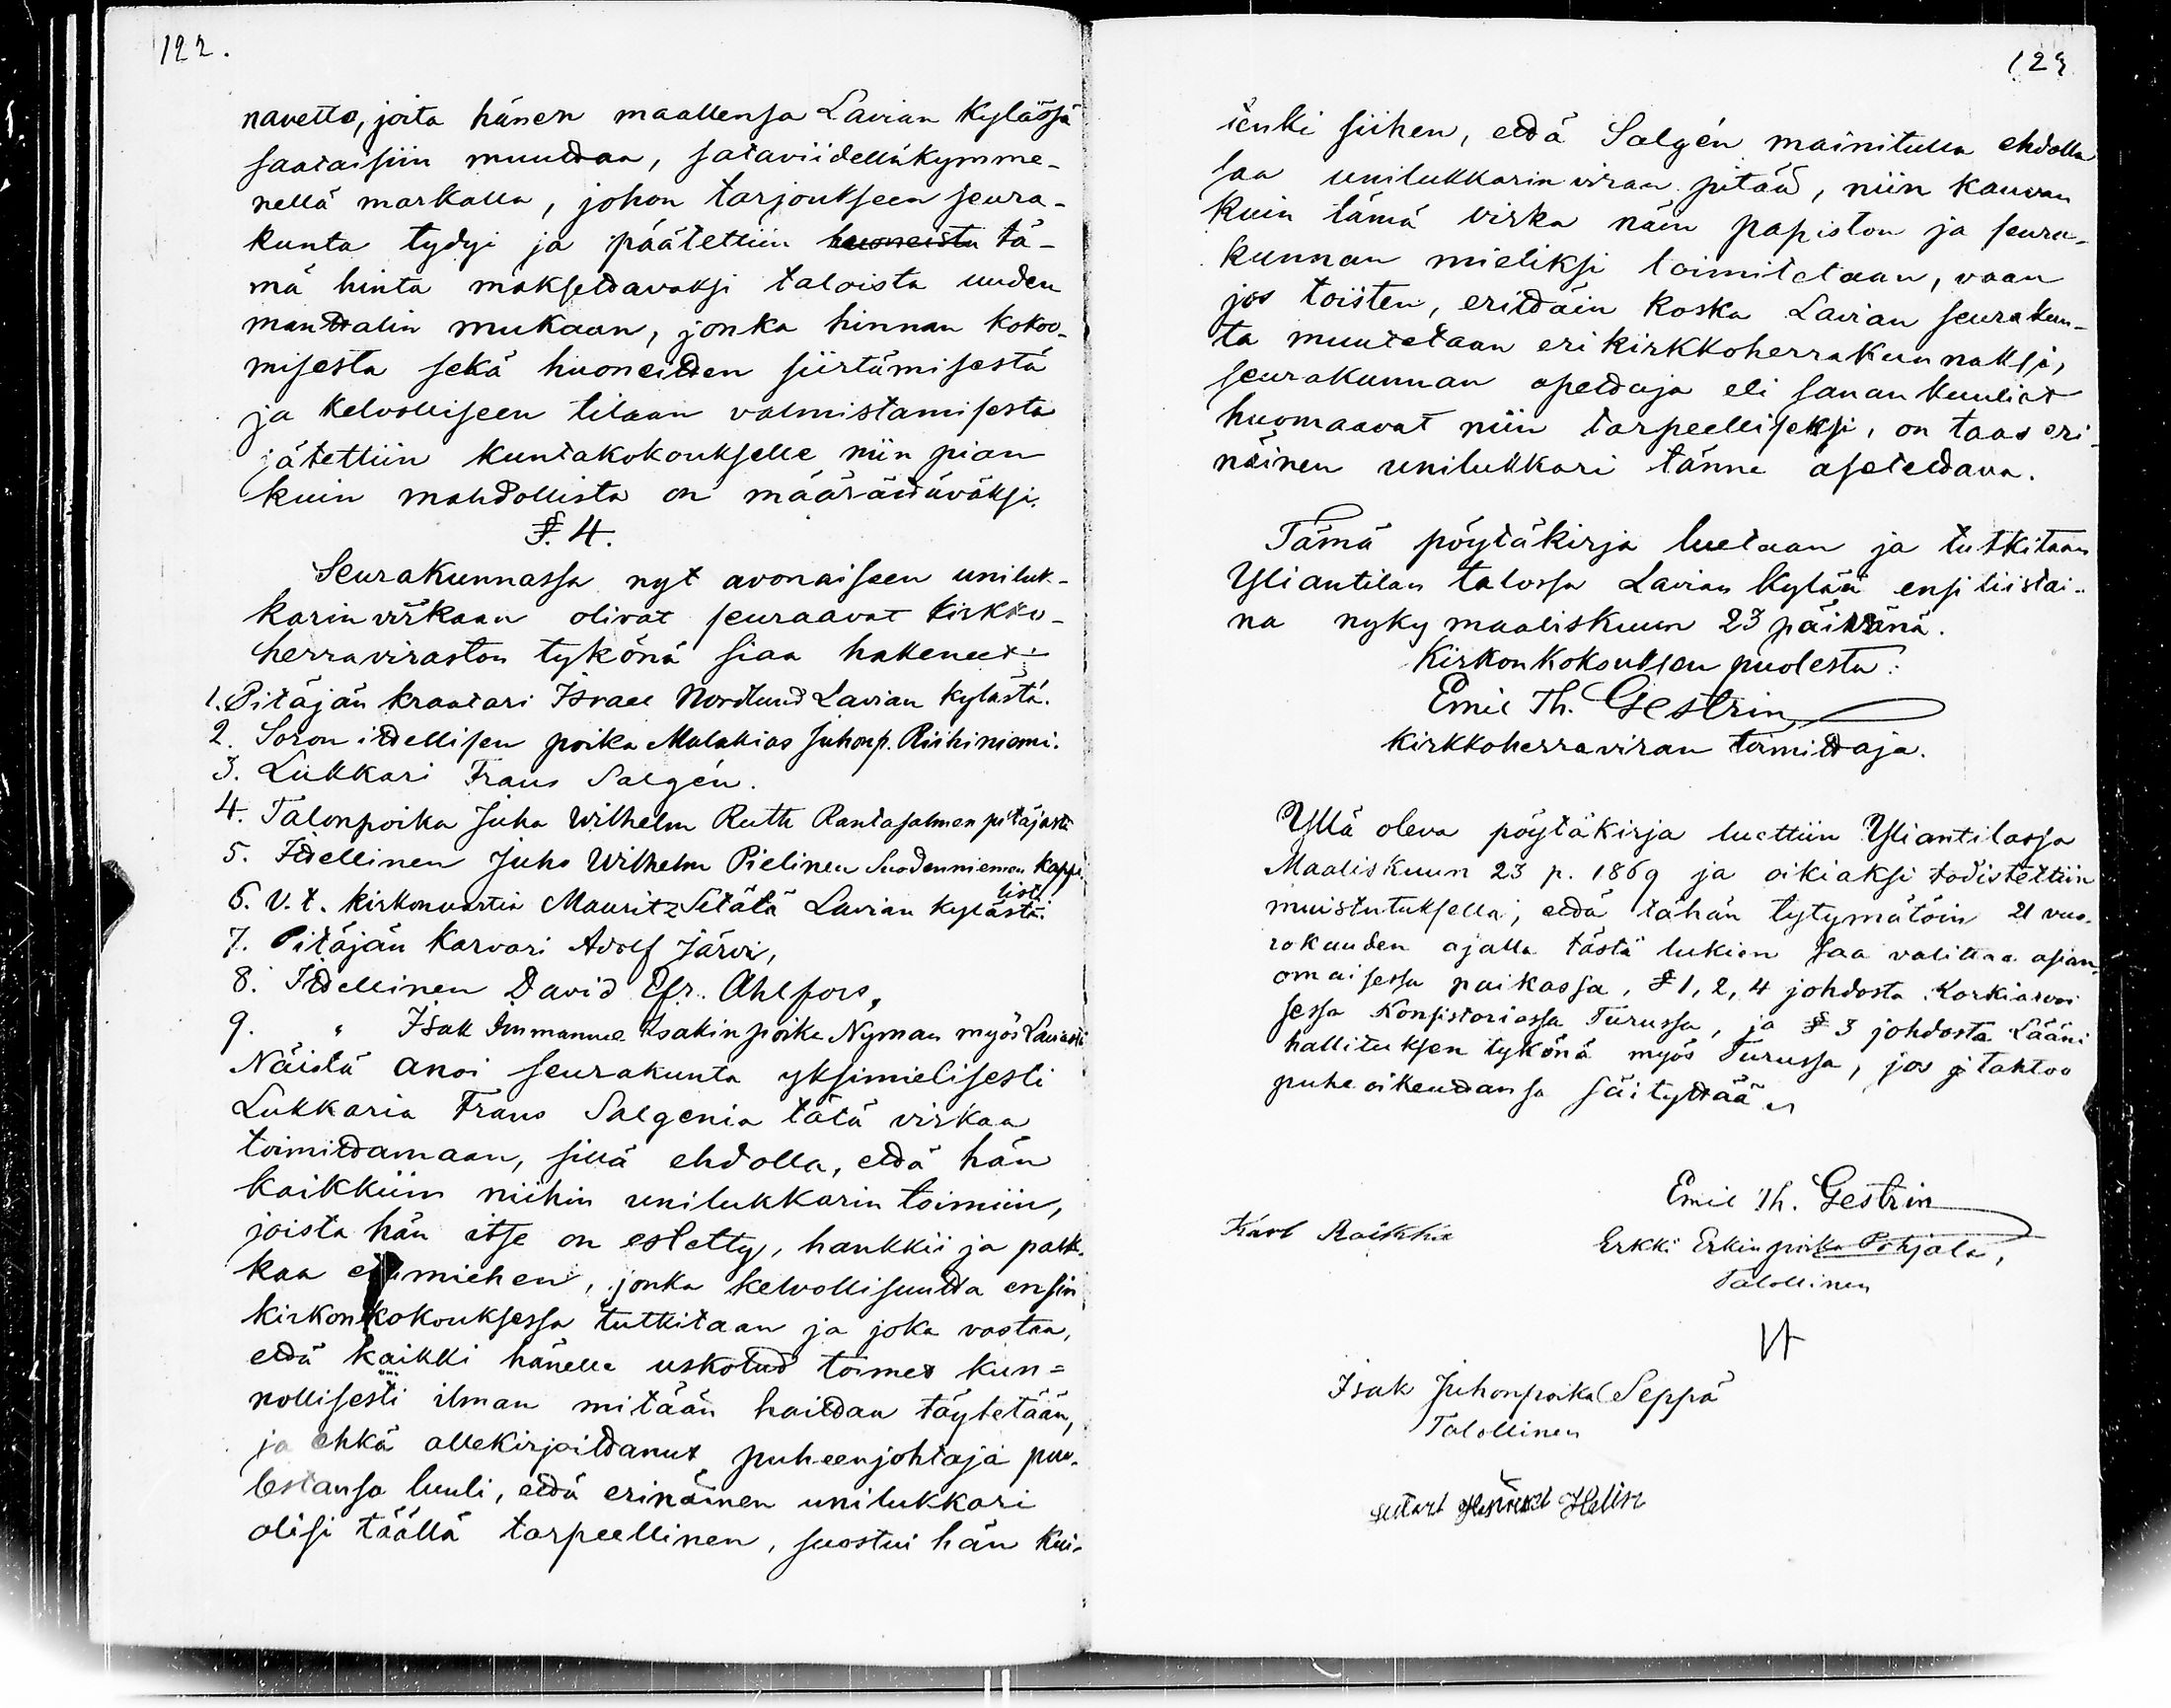 122.
navetto, joita hänen maallensa Lavian Kylässä
saataisiin muuttaa, sataviidelläkymme-
nellä markalla, johon tarjoukseen seura-
kunta tydyi ja päätettiin huoneista tä-
mä hinta maksettavaksi taloista uuden
manttalin mukaan, jonka hinnan kokoo-
misesta sekä huoneitten siirtämisestä
ja kelvolliseen tilaan valmistamisesta
jätettiin kuntakokoukselle niin pian
kuin mahdollista on määrättäväksi.
§. 4.
Seurakunnassa nyt avonaiseen uniluk-
karin virkaan olivat seuraavat kirkko-
herraviraston tykönä siaa hakeneet:
1. Pitäjän kraatari Israel Nordlund Lavian kylästä.
2. Soron itellisen poika Malakias Juhonp. Riihiniemi.
3. Lukkari Frans Salgén.
4. Talonpoika Juha Wilhelm Ruth Rantasalmen pitäjästä
5. Itellinen Juho Wilhelm Pielinen Suodenniemen kappe-
list.
6. V. t. kirkonvartia Mauritz Setälä Lavian kylästä.
7. Pitäjän Karvari Adolf Järvi,
8. Itellinen David Efr. Ahlfors,
9. " Isak Immanuel Isakin poika Nyman myös Laviasta
Näistä anoi seurakunta yksimielisesti
Lukkaria Frans Salgenia tätä virkaa
toimittamaan, sillä ehdolla, että hän
kaikkiin niihin unilukkarin toimiin,
joista hän itse on estetty, hankkii ja palk-
kaa miehen, jonka kelvollisuutta ensin
kirkonkokouksessa tutkitaan ja joka vastaa,
että kaikki hänelle uskotud toimet kun-
nollisesti ilman mitään haittaa täytetään,
ja ehkä allekirjoittanut puheenjohtaja puo-
lestansa luuli, että erinäinen unilukkari
olisi täällä tarpeellinen, suostui hän kui-
123
tenki siihen, että Salgén mainitulla ehdolla
saa unilukkarin viran pitää, niin kauvan
kuin tämä virka näin papiston ja seura-
kunnan mieliksi toimitetaan, vaan
jos toisten, erittäin koska Lavian seurakun-
ta muutetaan eri kirkkoherrakunnaksi,
seurakunnan opettaja eli sanan kuuliat
huomaavat niin tarpeelliseksi, on taas eri-
näinen unilukkari tänne asetettava.
Tämä pöytäkirja luetaan ja tutkitaan
Yliantilan talossa Lavian kylää ensi tiistai-
na nyky maaliskuun 23 päivänä.
Kirkonkokouksen puolesta:
Emil Th. Gestrin
Kirkkoherraviran toimittaja.
Yllä oleva pöytäkirja luettiin Yliantilassa
Maaliskuun 23 p. 1869 ja oikiaksi todistettiin
muistutuksella, että tähän tytymätöin 21 vuo-
rokauden ajalla tästä lukien saa valittaa asian-
omaisessa paikassa, § 1, 2, 4 johdosta Korkiarvoi
sessa Konsistoriossa Turussa, ja § 3 johdosta Lääni
hallituksen tykönä myös Turussa, jos tahtoo
puheoikeuttansa säityttää
Emil Th. Gestrin
Karl
Erkki Erkinpoika Pohjala,
Talollinen
Isak Juhonpoika Seppä
Talollinen
Helin